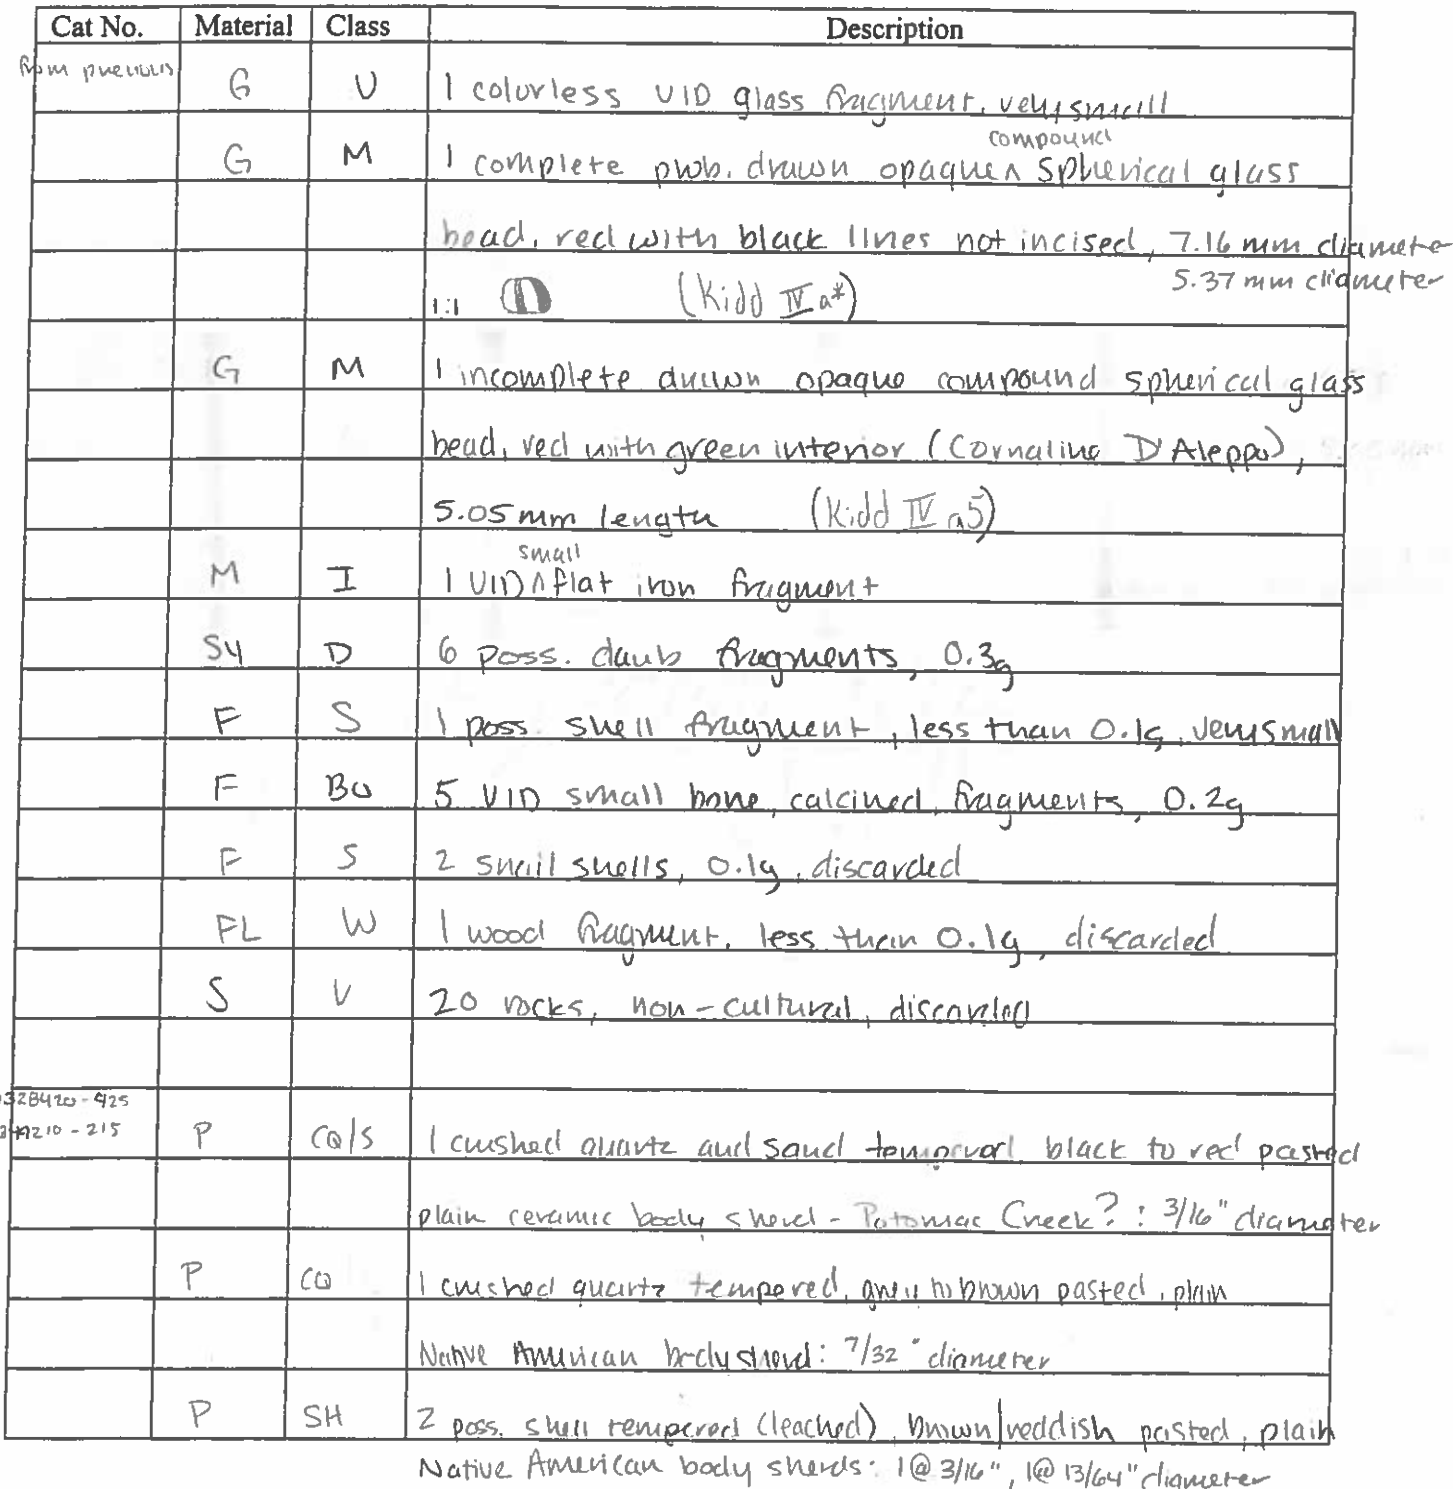 Cat No. Material Class Description
from previous G U 1 colorless UID glass fragment, very small
compound
G M 1 complete pwb. drawn opaque ^ spherical glass
bead, red with black lines not incised, 7.16 mm diameter
5.37 mm diameter
1:1 (Kidd IV a*)
G M 1 incomplete drawn opaque compound spherical glass
bead, red with green interior (Cornaline D'Aleppo),
5.05 mm length (Kidd IV a5)
small
M I 1 UID ^ flat iron fragment
Sy D 6 poss. daub fragments, 0.3g
F S 1 poss. shell fragment, less than 0.1g, very small
F Bo 5 UID small bone, calcined, fragments, 0.2g
F S 2 snail shells, 0.1g, discarded
FL W 1 wood fragment, less than 0.1g, discarded
S U 20 rocks, non-cultural, discarded
328420-425
210-215 P CQ/S 1 crushed quartz and sand tempered black to red pasted
plain ceramic body sherd - Potomac Creek? : 3/16" diameter
P CQ 1 crushed quartz tempered, grey to brown pasted, plain
Native American body sherd: 7/32" diameter
P SH 2 poss. shell tempered (leached), brown/reddish pasted, plain
Native American body sherds: 1@ 3/16", 1@ 13/64" diameter